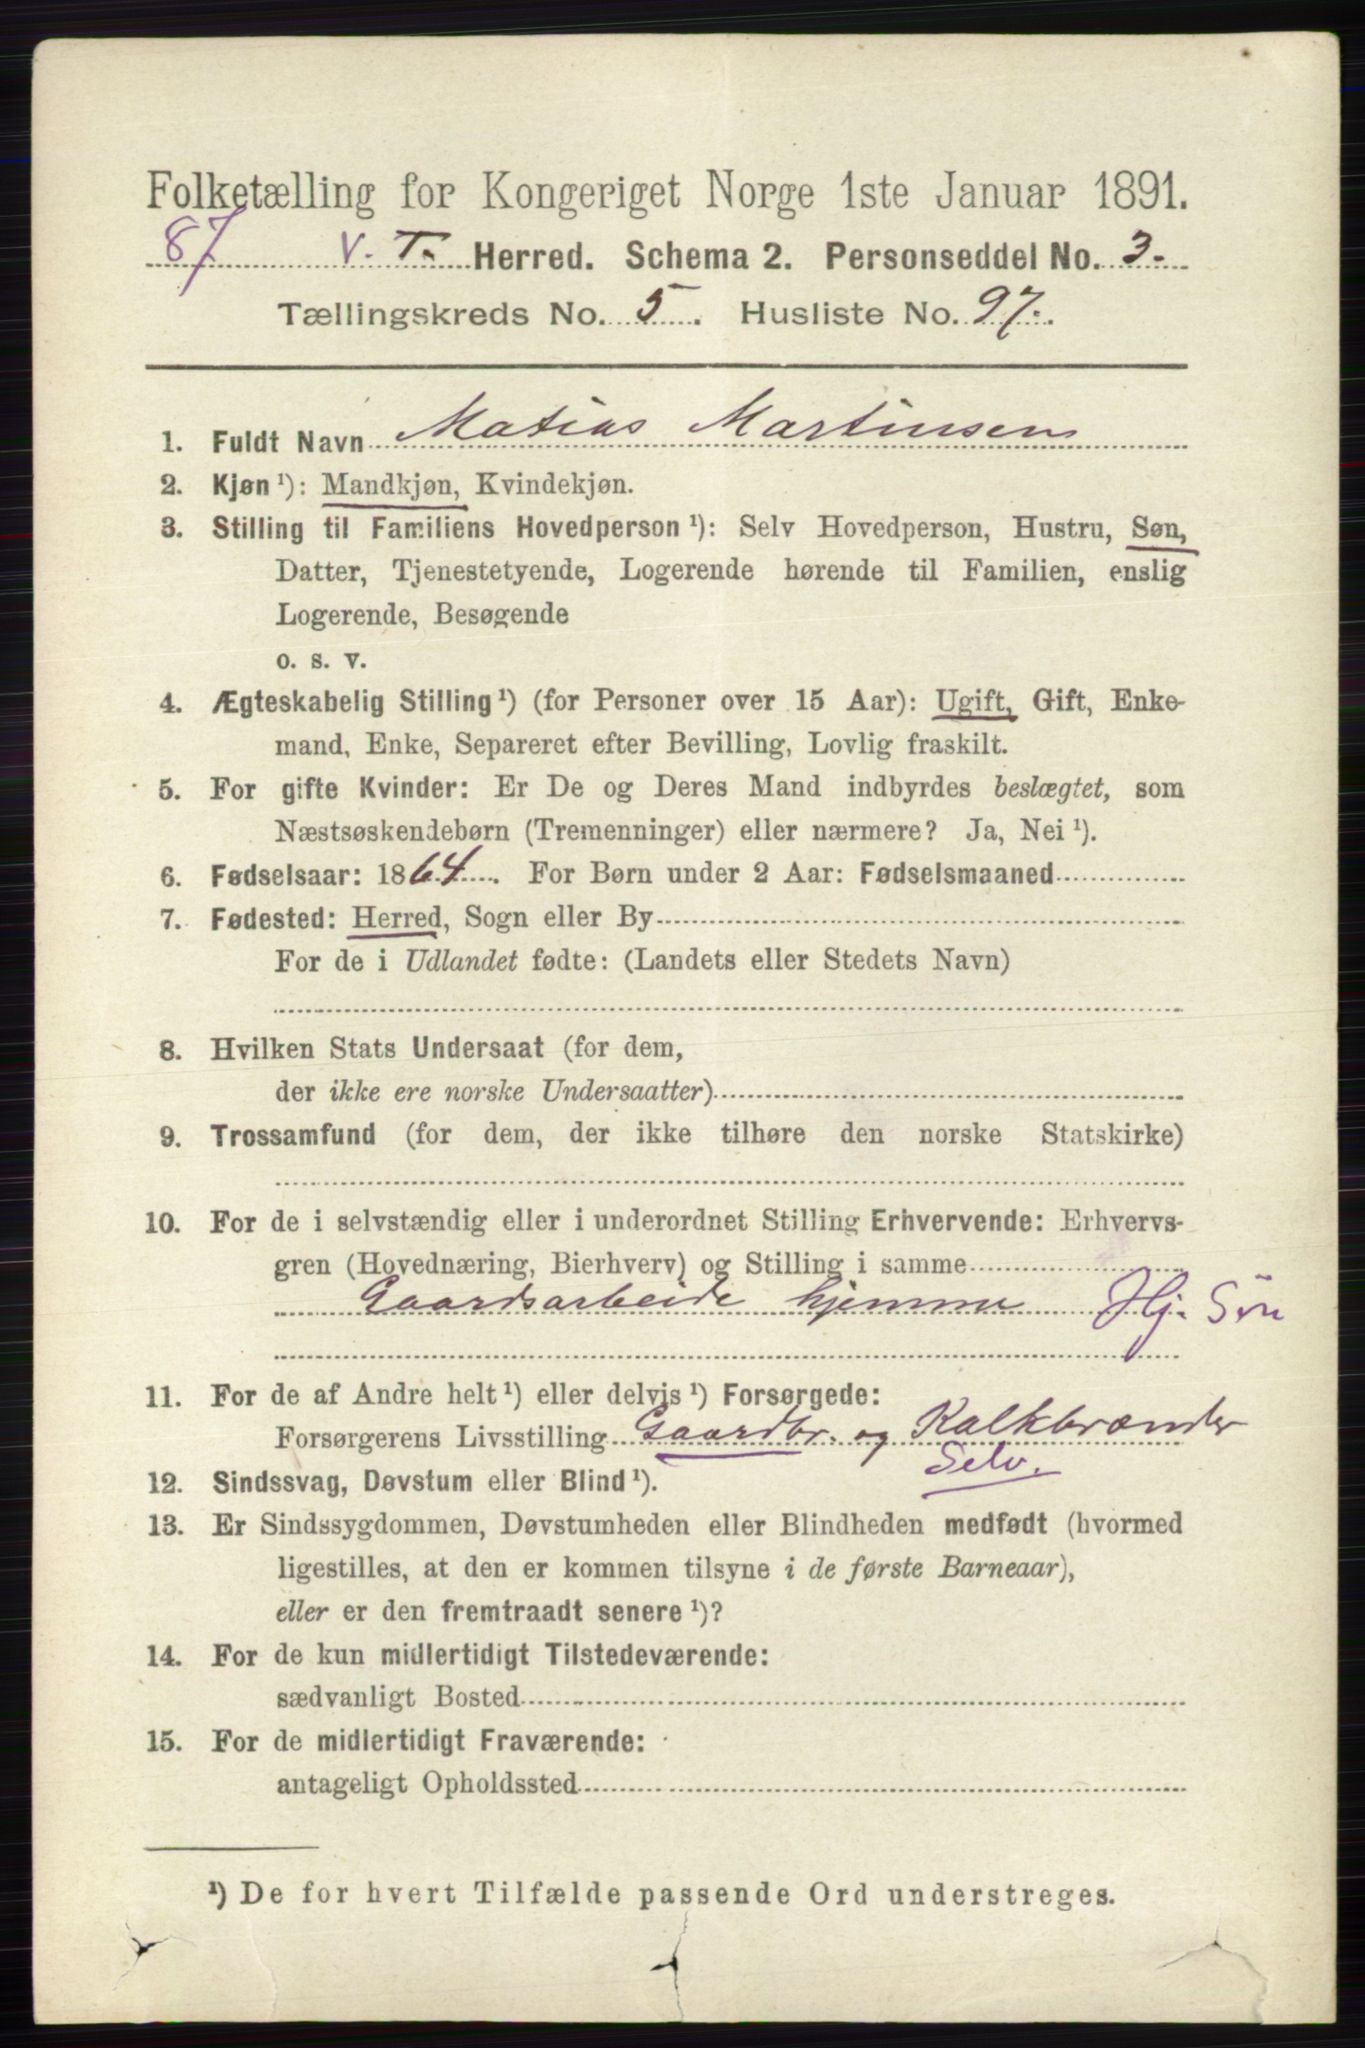 Folketælling for Kongeriget Norge 1ste Januar 1891.
87 V. T. Herred. Schema 2. Personseddel No. 3.
Tællingskreds No. 5. Husliste No. 97.
1. Fuldt Navn Matias Martinsen
2. Kjøn ¹): Mandkjøn, Kvindekjøn.
3. Stilling til Familiens Hovedperson ¹): Selv Hovedperson, Hustru, Søn,
Datter, Tjenestetyende, Logerende hørende til Familien, enslig
Logerende, Besøgende
o. s. v.
4. Ægteskabelig Stilling ¹) (for Personer over 15 Aar): Ugift, Gift, Enke-
mand, Enke, Separeret efter Bevilling, Lovlig fraskilt.
5. For gifte Kvinder: Er De og Deres Mand indbyrdes beslægtet, som
Næstsøskendebørn (Tremenninger) eller nærmere? Ja, Nei ¹).
6. Fødselsaar: 1864. For Børn under 2 Aar: Fødselsmaaned
7. Fødested: Herred, Sogn eller By
For de i Udlandet fødte: (Landets eller Stedets Navn)
8. Hvilken Stats Undersaat (for dem,
der ikke ere norske Undersaatter)
9. Trossamfund (for dem, der ikke tilhøre den norske Statskirke)
10. For de i selvstændig eller i underordnet Stilling Erhvervende: Erhvervs-
gren (Hovednæring, Bierhverv) og Stilling i samme
Gaardsarbeide hjemme Hj. Søn
11. For de af Andre helt ¹) eller delvis ¹) Forsørgede:
Forsørgerens Livsstilling Gaardbr. og Kalkbrænder
Selv.
12. Sindssvag, Døvstum eller Blind ¹).
13. Er Sindssygdommen, Døvstumheden eller Blindheden medfødt (hvormed
ligestilles, at den er kommen tilsyne i de første Barneaar),
eller er den fremtraadt senere ¹)?
14. For de kun midlertidigt Tilstedeværende:
sædvanligt Bosted
15. For de midlertidigt Fraværende:
antageligt Opholdssted
¹) De for hvert Tilfælde passende Ord understreges.